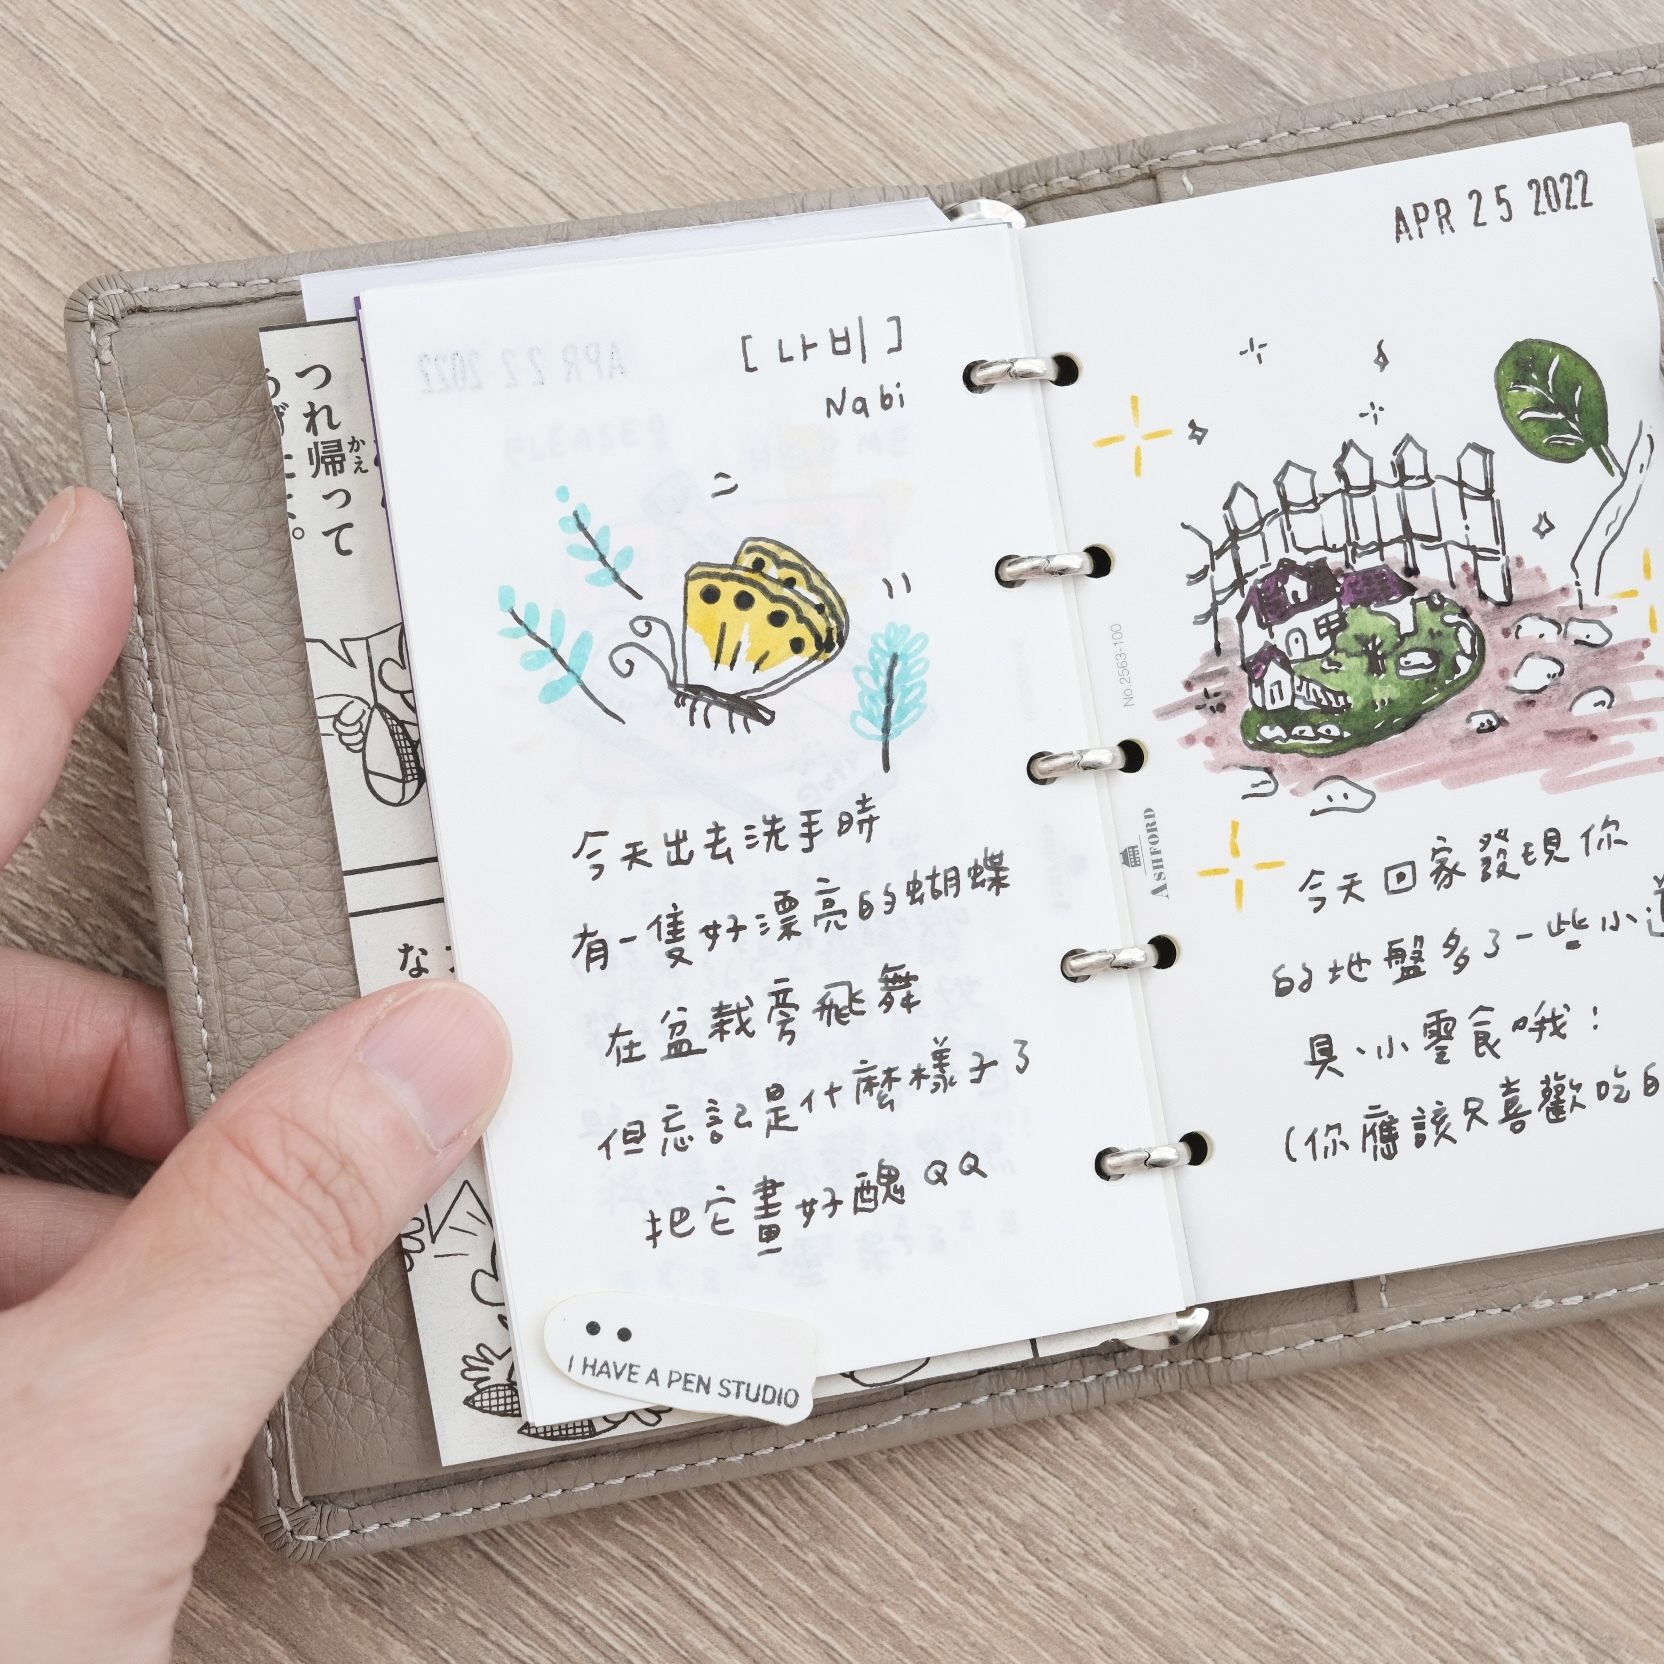 [나비]
Nabi
今天出去洗手時
有一隻好漂亮的蝴蝶
在盆栽旁飛舞
但忘記是什麼樣子了
把它畫好醜 QQ
I HAVE A PEN STUDIO
APR 25 2022
今天回家發現你
的地盤多了一些小道
具、小零食哦!
(你應該只喜歡吃的
No.2563-100
ASHFORD
つれ帰って
かえ
な
APR 22 2022